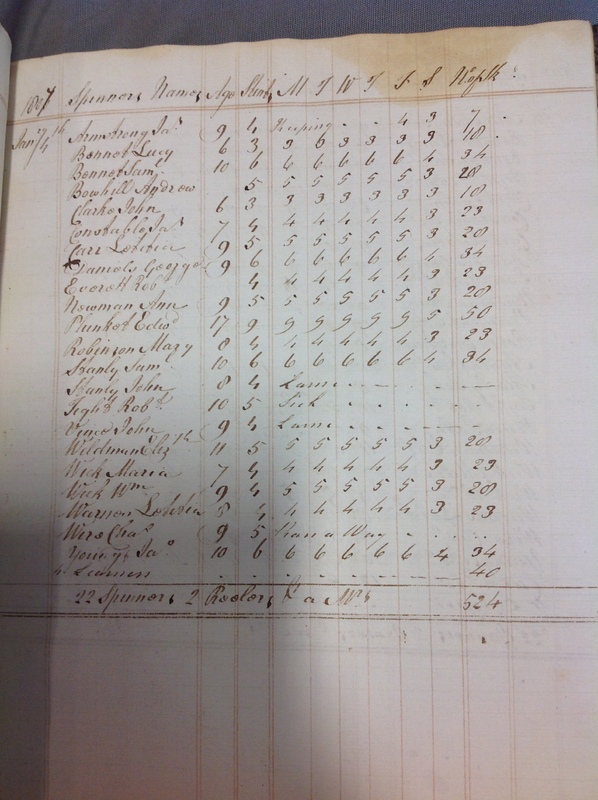 1807 Spinners Names Age Stint M T W T F S No of Sk
Jany 4th Armstrong Jas 9 4 Keeping - - 4 3 7
Bennet Lucy 6 3 3 3 3 3 3 3 18
Bennet Saml 10 6 6 6 6 6 6 4 34
Bowhill Andrew 5 5 5 5 5 5 3 28
Clarke John 6 3 3 3 3 3 3 3 18
Constable Jas 7 4 4 4 4 4 4 3 23
Carr Letitia 9 5 5 5 5 5 5 3 28
Daniels George 9 6 6 6 6 6 6 4 34
Everett Rob 4 4 4 4 4 4 3 23
Newman Ann 9 5 5 5 5 5 5 3 28
Plunket Edwd 17 9 9 9 9 9 9 5 50
Robinson Mary 8 4 4 4 4 4 4 3 23
Stanly Saml 10 6 6 6 6 6 6 4 34
Stanly John 8 4 Lame - - - - - -
Robt 10 5 Sick - - - -
Vince John 9 4 Lame - - - - - -
Wildman Elizth 11 5 5 5 5 5 5 3 28
Wick Maria 7 4 4 4 4 4 4 3 23
Wick Wm 9 4 5 5 5 5 5 3 28
Warner Letitia 5 4 4 4 4 4 4 3 23
Chas 9 5 Ran a Way - - - -
Young Jas 10 6 6 6 6 6 6 4 34
4 - - - - - - - - 40
22 Spinners 2 Reelers & a Mrs 524